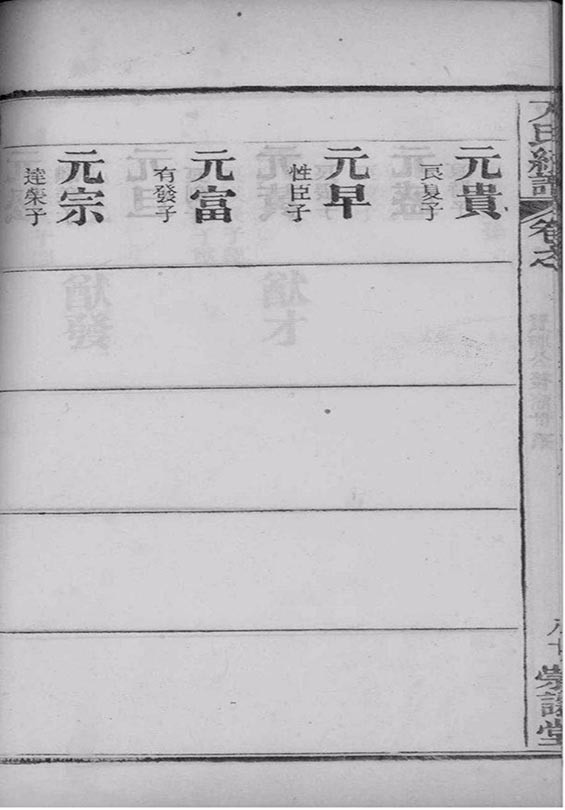 卷之
元貴
良夏子
元早
性臣子
元富
有發子
元宗
達榮子